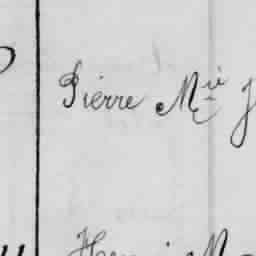 Pierre Mie J
Henri M